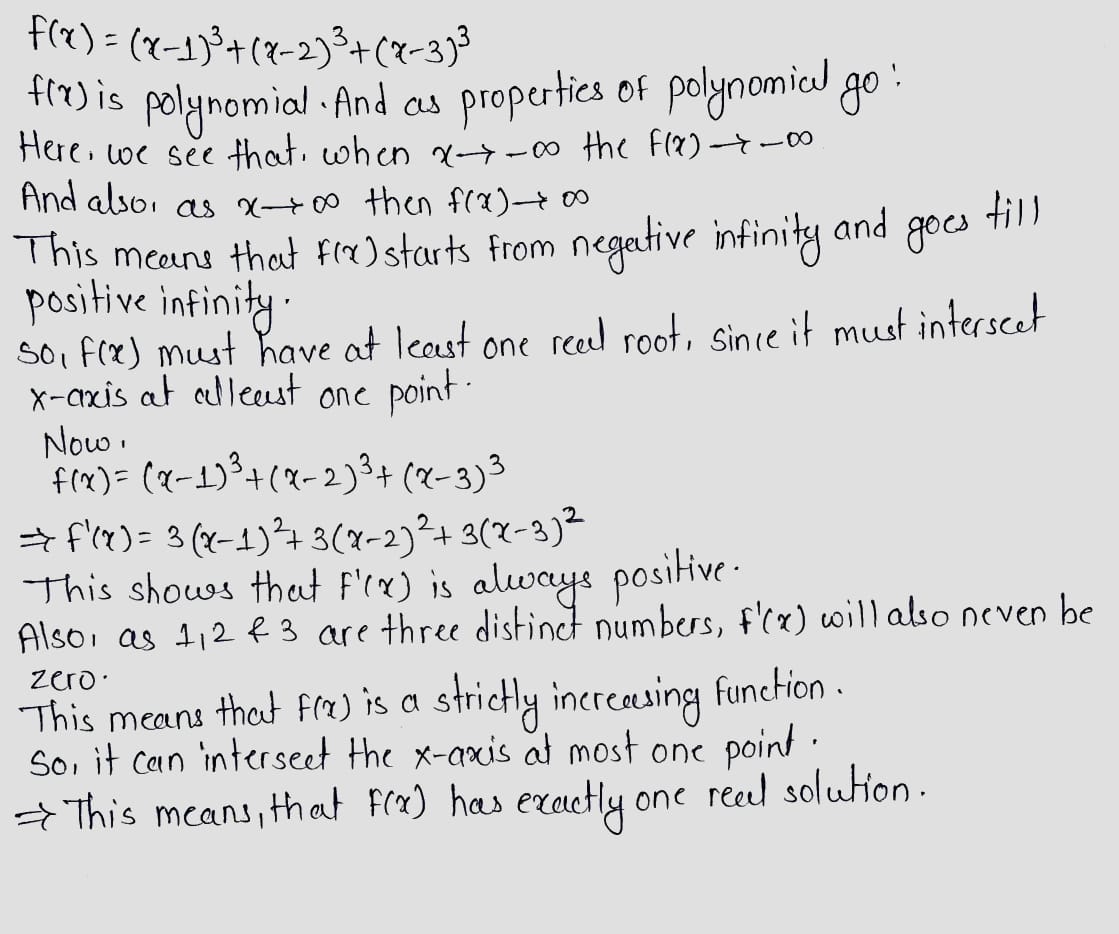 f(x) = (x-1)³+(x-2)³+(x-3)³
f(x) is polynomial. And as properties of polynomial go:
Here, we see that, when x→-∞ the f(x)→-∞
And also, as x→∞ then f(x)→∞
This means that f(x) starts from negative infinity and goes till
positive infinity.
so, f(x) must have at least one real root, since it must intersect
x-axis at atleast one point.
Now,
f(x)= (x-1)³+(x-2)³+(x-3)³
⇒ f'(x)= 3(x-1)²+3(x-2)²+3(x-3)²
This shows that f'(x) is always positive.
Also, as 1,2 & 3 are three distinct numbers, f'(x) will also never be
zero.
This means that f(x) is a strictly increasing function.
So, it can intersect the x-axis at most one point.
⇒ This means, that f(x) has exactly one real solution.